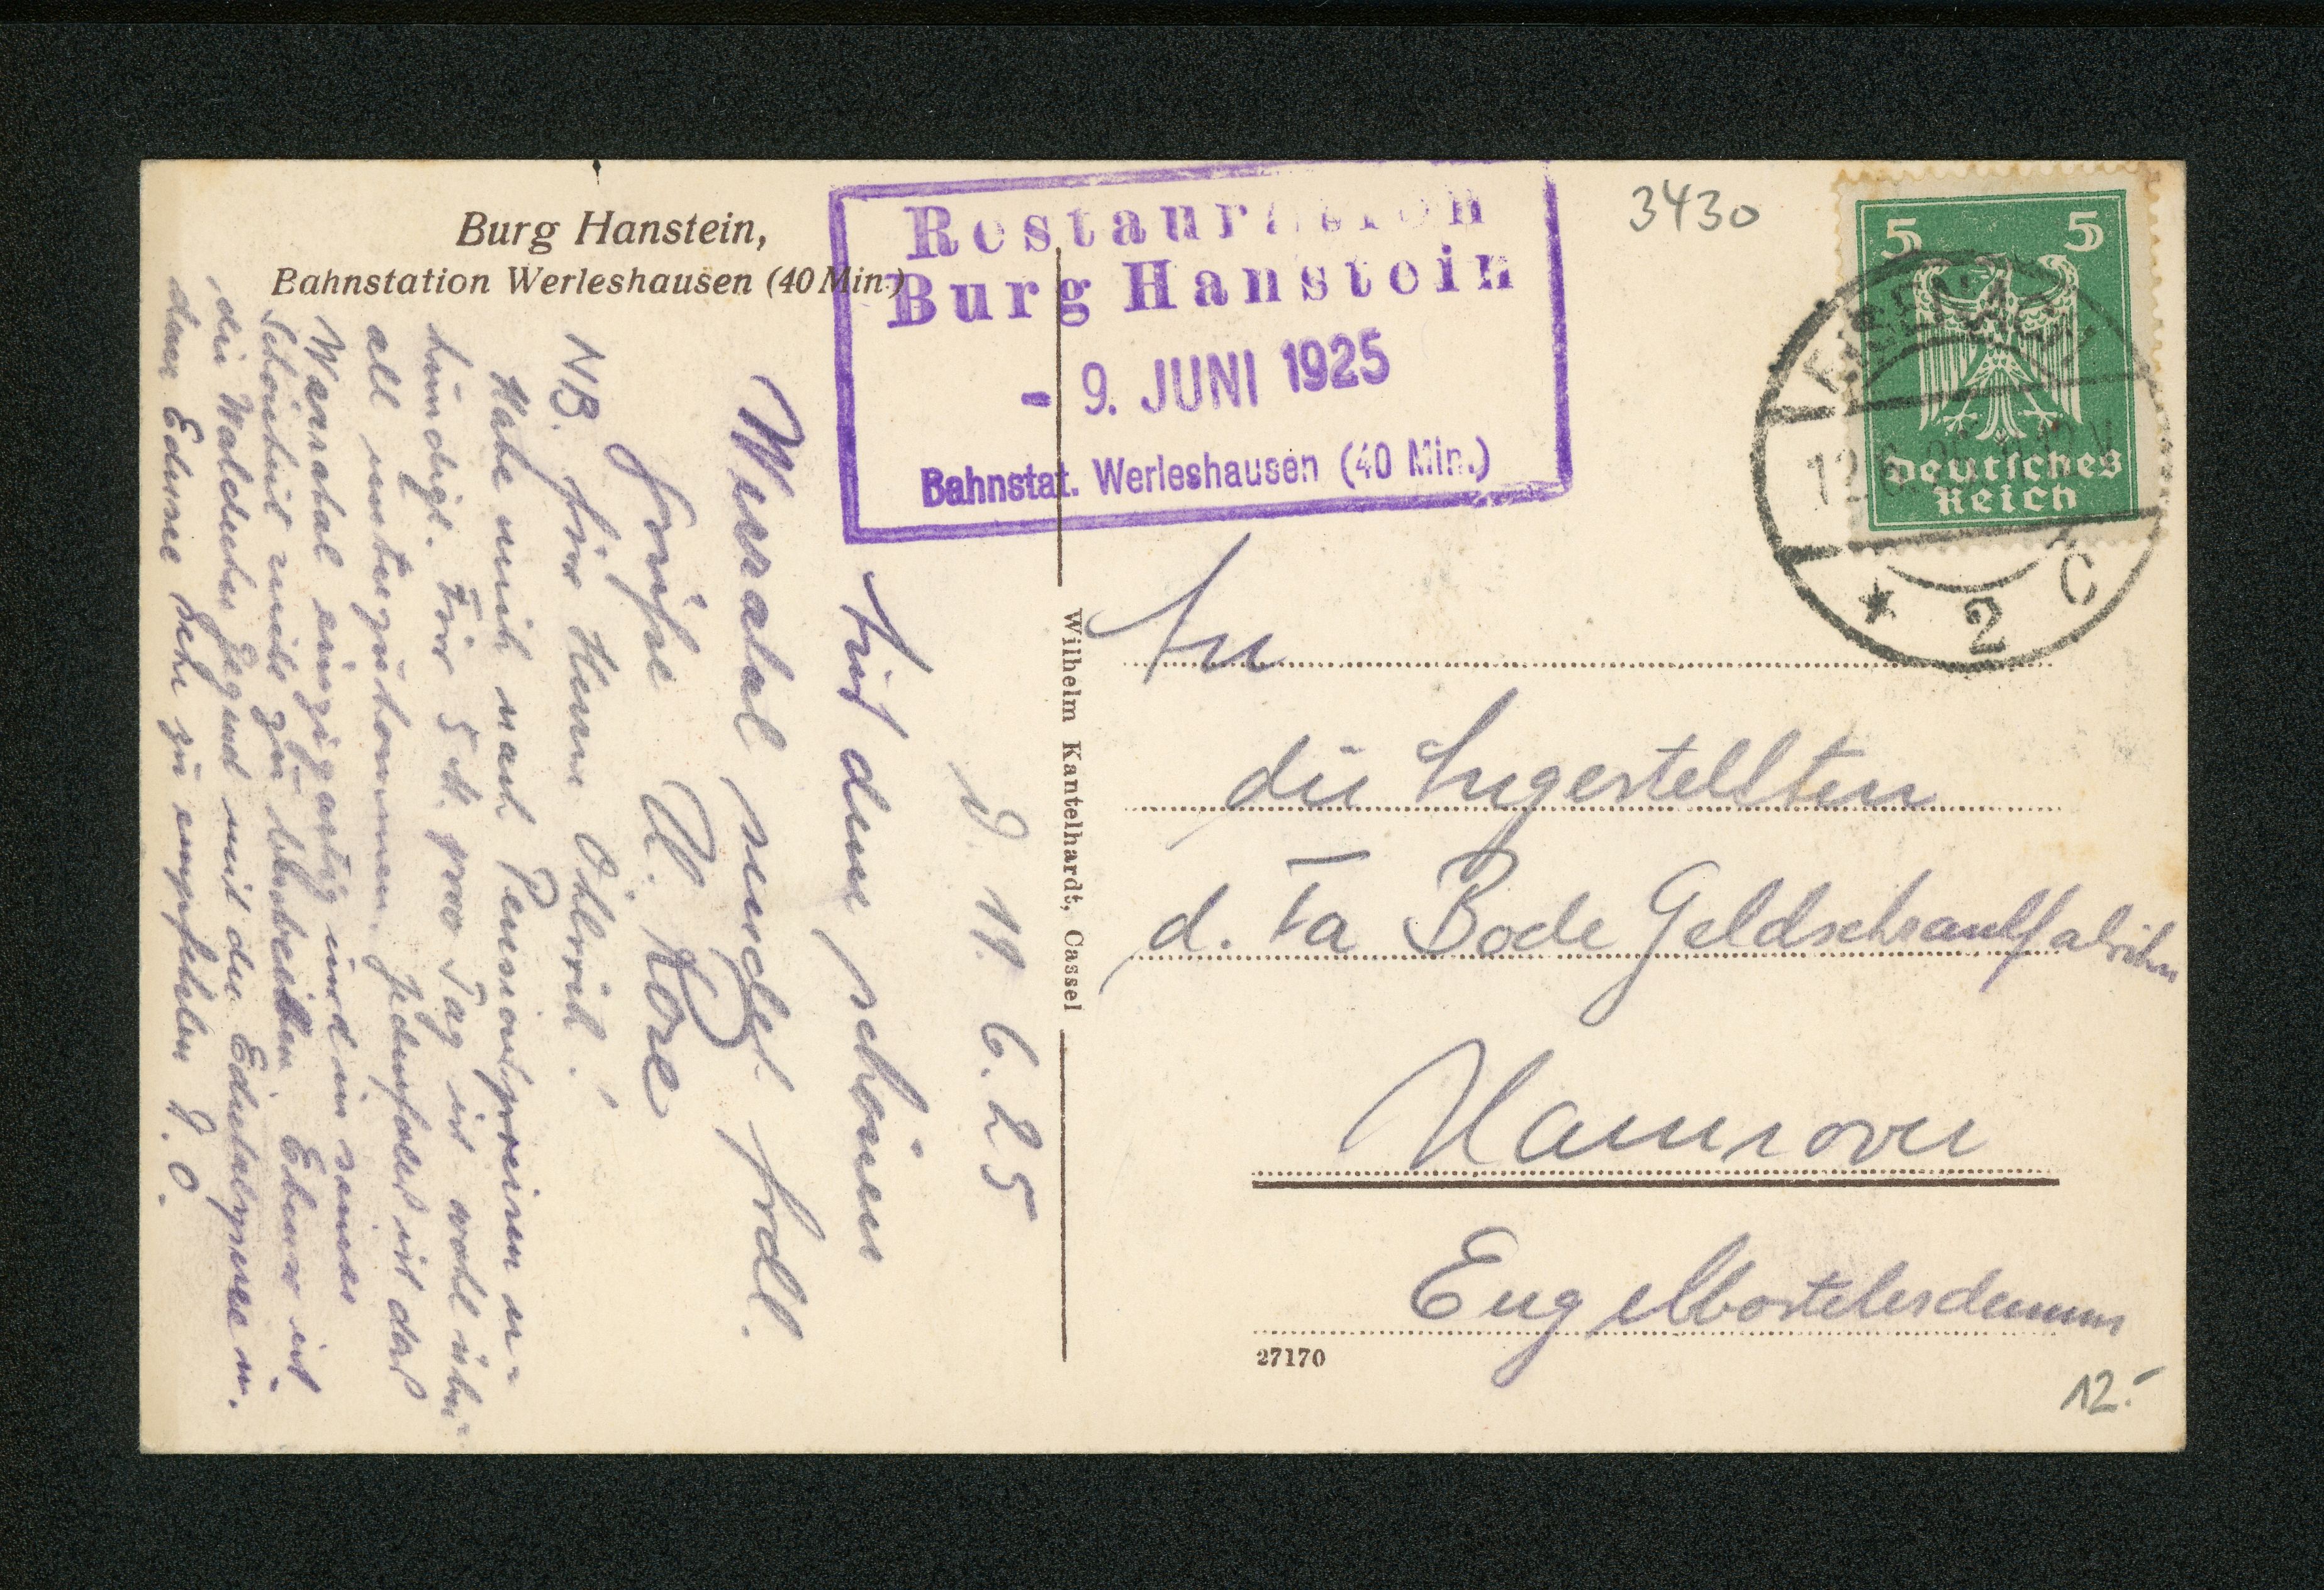 Burg Hanstein,
Bahnstation Werleshausen (40 Min.)
Restauration
Burg Hanstein
- 9. JUNI 1925
Bahnstat. Werleshausen (40 Min.)
3430
5 5
Deutsches
Reich
EISENACH
12.6.25
* 2 C
Wilhelm Kantelhardt, Cassel
An
die Angestellten
d. Fa Bode Geldschrankfabriken
Hannover
Engelbostelerdamm
27170
12.-
d. 11. 6. 25
Aus dem schönen
Werratal sendet frdl.
Grüße A. Köre
NB. für Herrn Öhlerich!
Habe mich nach Pensionspreisen er-
kundigt. Für 5 M. pro Tag ist wohl über-
all unterzukommen. Jedenfalls ist das
Werratal einzigartig und in seiner
Schönheit nicht zu beschreiben. Ebenso ist
die Waldecker Gegend mit der Edertalsperre u.
dem Edersee sehr zu empfehlen D. O.